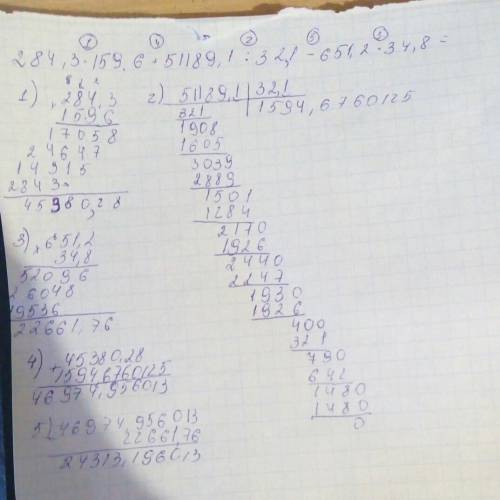 ① ④ ② ⑤ ③
284,3·159,6+51189,1:32,1-651,2·34,8=
1) 284,3
1596
17058
24647
14315
2843
45380,28
2) 51189,1 | 32,1
1594,6760125
321
1908
1605
3039
2889
1501
1284
2170
1926
2440
2247
1930
1926
400
321
790
642
1480
1480
0
3) × 651,2
34,8
52096
26048
19536
22661,76
4) + 45380,28
1594,6760125
46974,956013
5) 46974,956013
22661,76
24313,196013